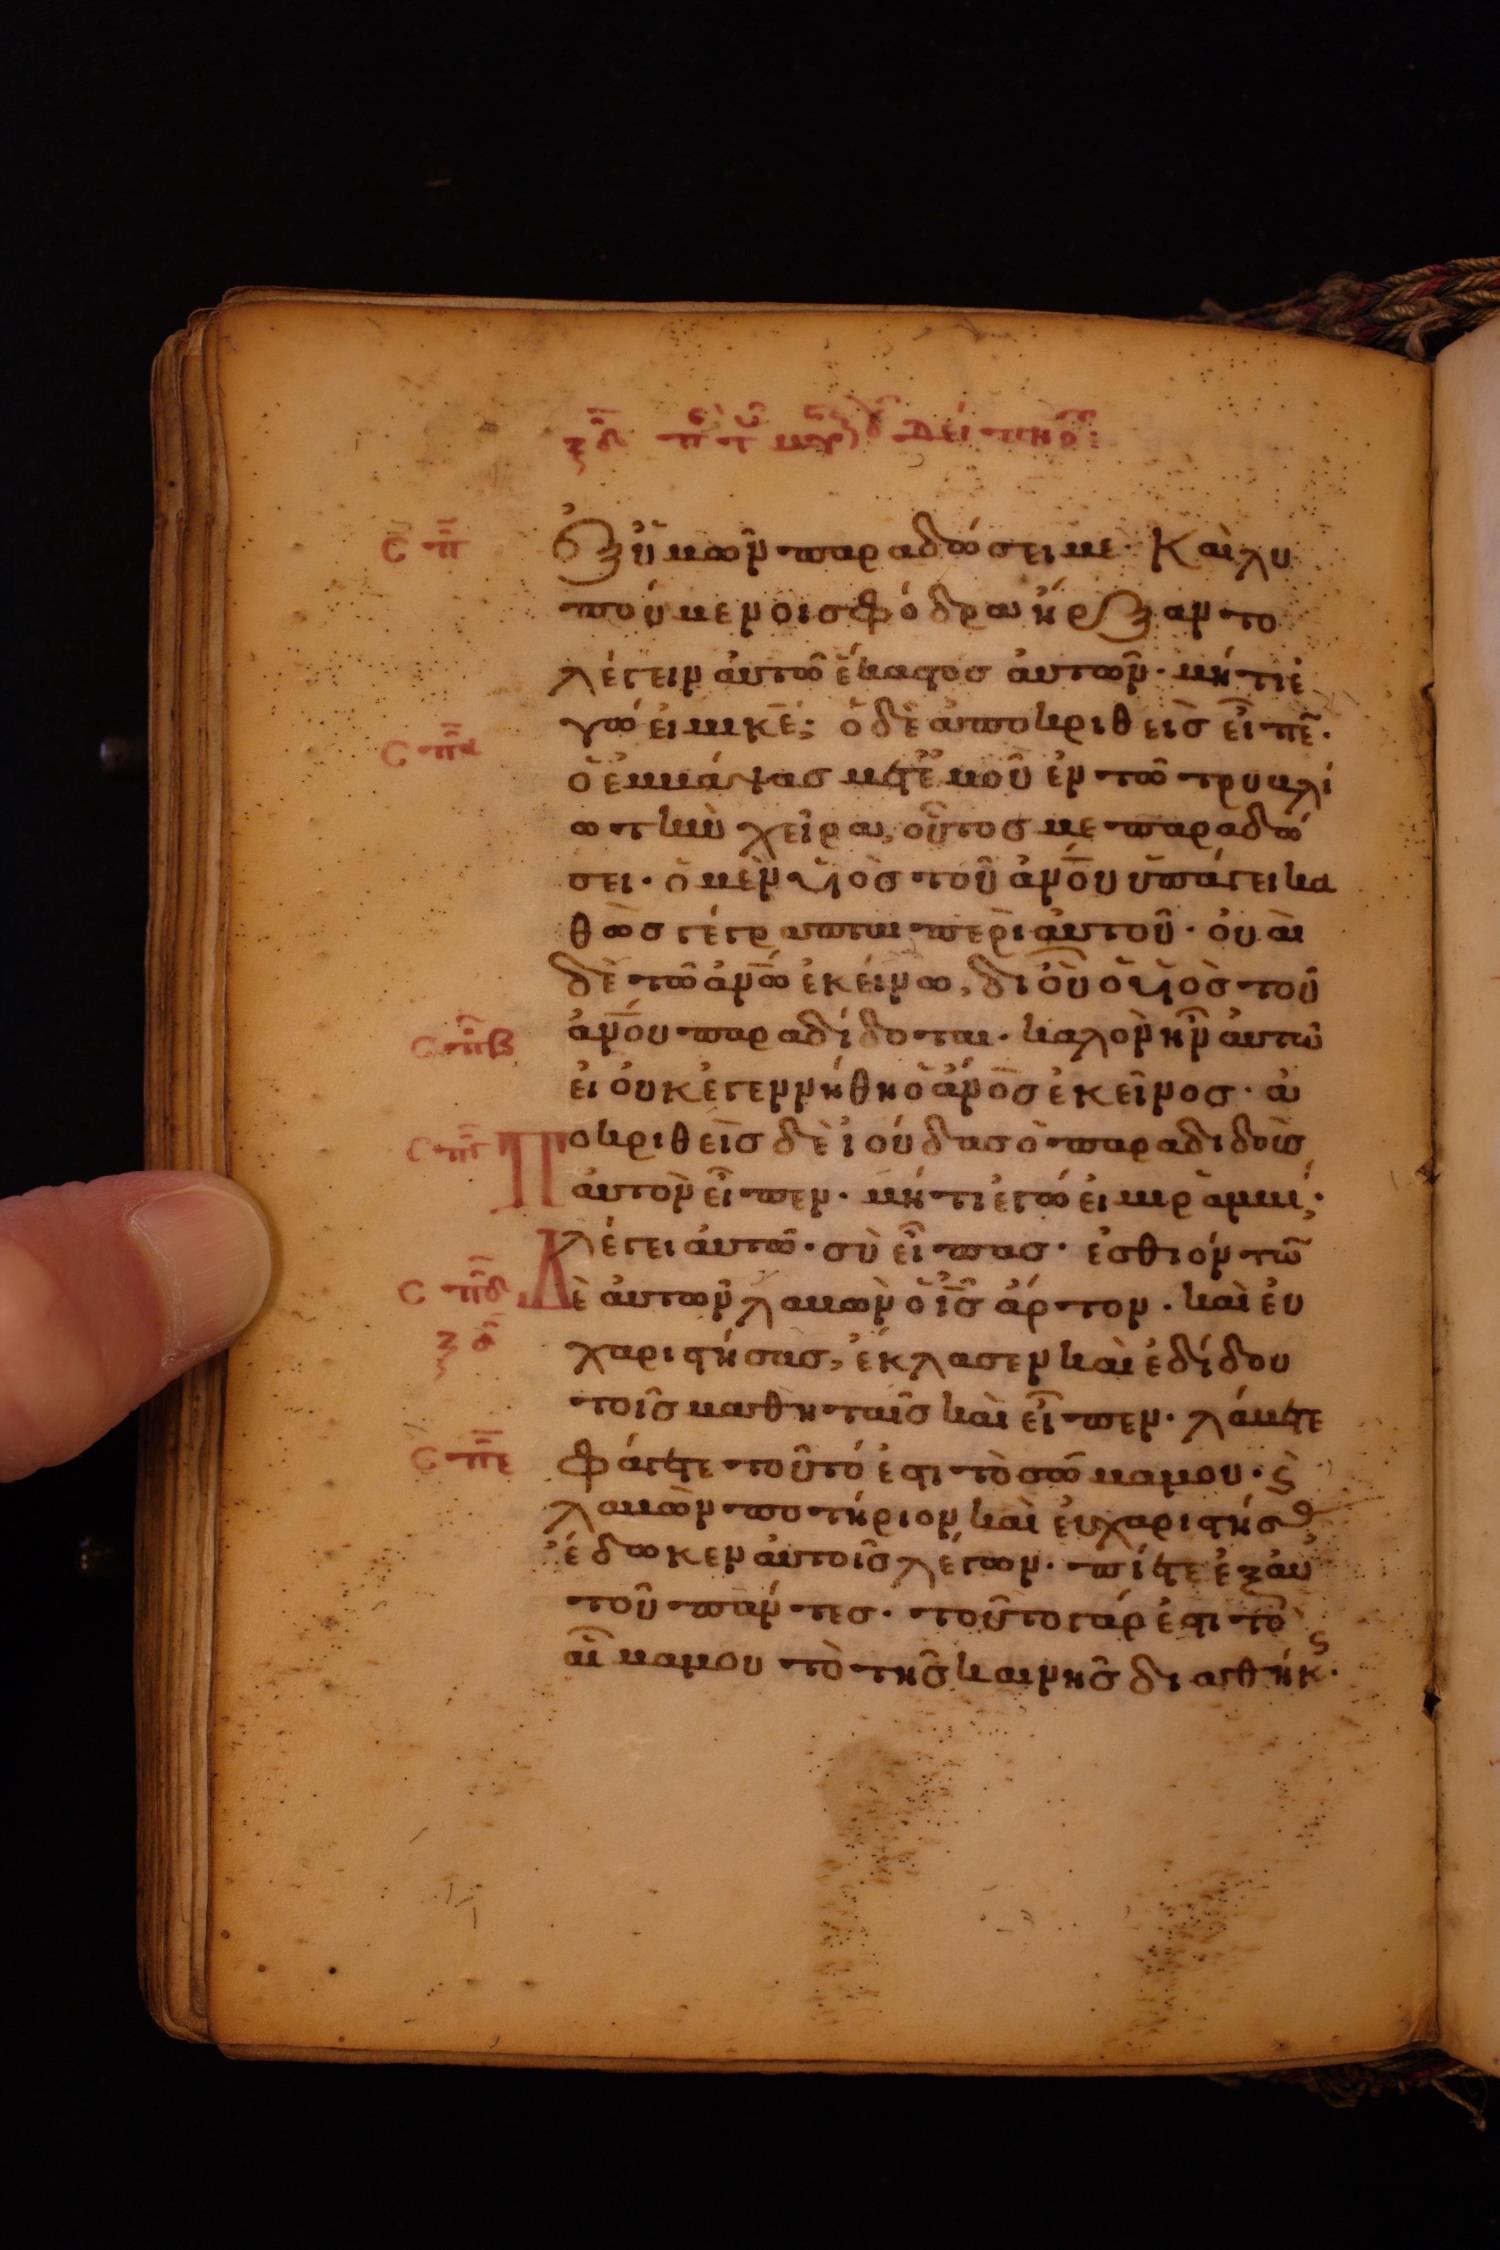 ξδ π τ μυ δείπνου:
σπ
ἐξ ὑμῶν παραδώσει με· Καὶ λυ
πούμενοι σφόδρα ἤρξαντο
λέγειν αὐτῶ ἕκαστος αὐτῶν· μή τι ἐ
γώ εἰμι κ̅ε̅; ὁ δὲ ἀποκριθεὶς εἶπε̅·
σπα
ὁ ἐμβάψας μετ ἐμοῦ ἐν τῶ τρυβλί
ω τὴν χεῖρα, οὗτος με παραδώ
σει· ὁ μὲν υἱὸς τοῦ ἀν̅ου ὑπάγει κα
θὼς γέγραπται περὶ αὐτοῦ· οὐαὶ
δὲ τῶ ἀν̅ω ἐκείνω, δι οὗ ὁ υἱὸς τοῦ
σπβ
ἀν̅ου παραδίδοται· καλὸν ἦν αὐτῶ
εἰ οὐκ ἐγεννήθη ὁ ἀν̅ος ἐκεῖνος· ἀ
σπγ
Ποκριθεὶς δὲ ἰούδας ὁ παραδιδοὺς
αὐτὸν εἶπεν· μή τι ἐγώ εἰμι ῥαββί;·
λέγει αὐτῶ· σὺ εἶπας· ἐσθιόντω̅
σπδ
Δὲ αὐτῶν λαβὼν ὁ ι̅ς̅ ἄρτον· καὶ εὐ
ξδ
χαριστήσας, ἔκλασεν καὶ ἐδίδου
τοῖς μαθηταῖς καὶ εἶπεν· λάβετε
σπε
φάγετε τοῦτό ἐστι τὸ σῶμα μου· ϗ
λαβὼν ποτήριον, καὶ εὐχαριστήσας
ἔδωκεν αὐτοῖς λέγων· πίετε ἐξ αὐ
τοῦ πάντες· τοῦτο γάρ ἐστι τὸ
αἷμα μου τὸ τῆς καινῆς διαθήκης·